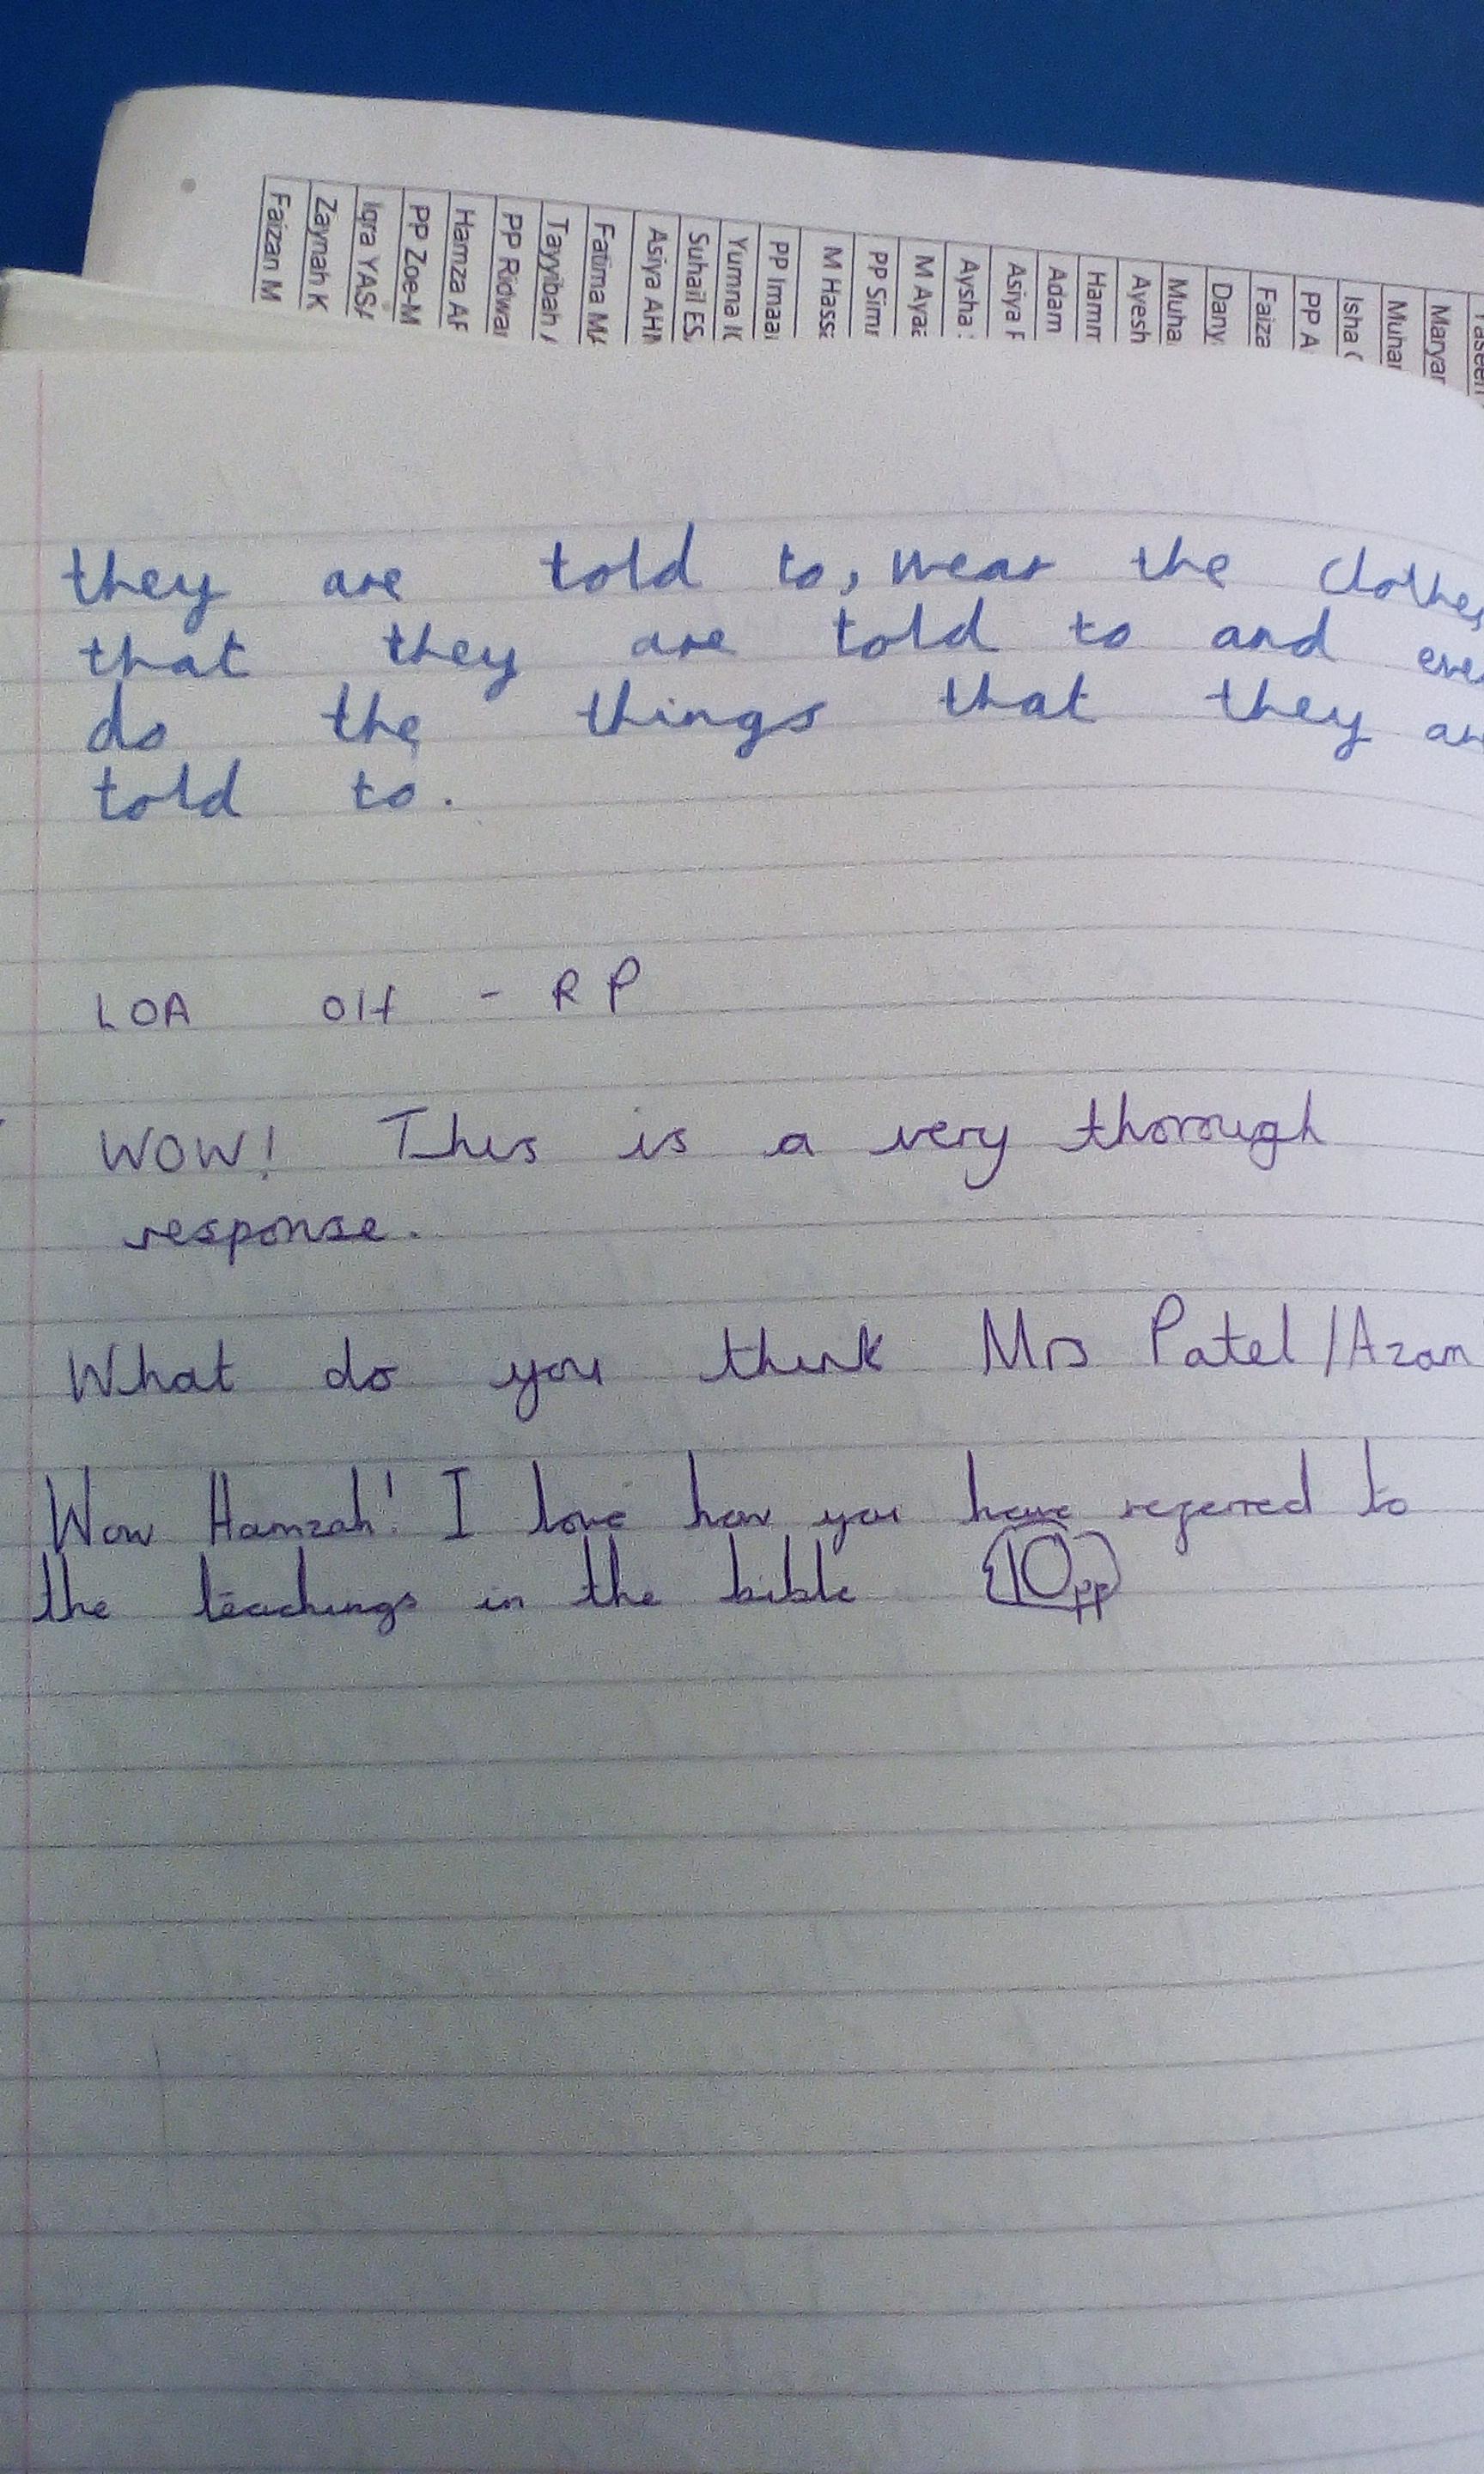 Faizan M
Zaynah K
Iqra YASA
PP Zoe-M
Hamza AF
PP Ridwa
Tayyibah
Fatima MA
Asiya AH
Suhail ES
Yumna
PP Imaa
M Hass
PP Sim
M Aya
Aysha
Asiya F
Adam
Ham
Ayesh
Muha
Dany
Faiza
PP A
Isha
Muha
Marya
they are told to, wear the clothes
that they are told to and even
do the things that they are
told to.
LOA - RP
WOW! This is a very thorough
response.
What do you think Mrs Patel/Azam
Wow Hamzah! I love how you have referred to
the teachings in the bible 10pp